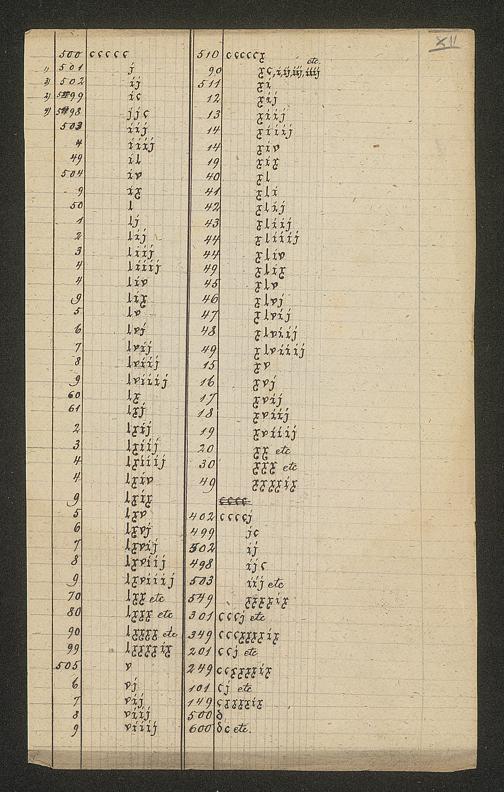 XII
500 ccccc
1) 501 j
2) 502 ij
2) 599 ic
3) 598 jjc
503 iij
4 iiij
49 il
504 iv
9 ix
50 l
1 lj
2 lij
3 liij
4 liiij
4 liv
9 lix
5 lv
6 lvj
7 lvij
8 lviij
9 lviiij
60 lx
61 lxj
2 lxij
3 lxiij
4 lxiiij
4 lxiv
9 lxix
5 lxv
6 lxvj
7 lxvij
8 lxviij
9 lxviiij
70 lxx etc
80 lxxx etc
90 lxxxx etc
99 lxxxxix
505 v
6 vj
7 vij
8 viij
9 viiij
510 cccccx
etc.
90 xc,i,ij,iij,iiij
511 xi
12 xij
13 xiij
14 xiiij
14 xiv
19 xix
40 xl
41 xli
42 xlij
43 xliij
44 xliiij
44 xliv
49 xlix
45 xlv
46 xlvj
47 xlvij
48 xlviij
49 xlviiij
15 xv
16 xvj
17 xvij
18 xviij
19 xviiij
20 xx etc
30 xxx etc
49 xxxxix
cccc
402 ccccj
499 jc
502 ij
498 ijc
503 iij etc
549 xxxxix
301 cccj etc
349 cccxxxxix
201 ccj etc
249 ccxxxxix
101 cj etc
149 cxxxxix
500 δ
600 δc etc.